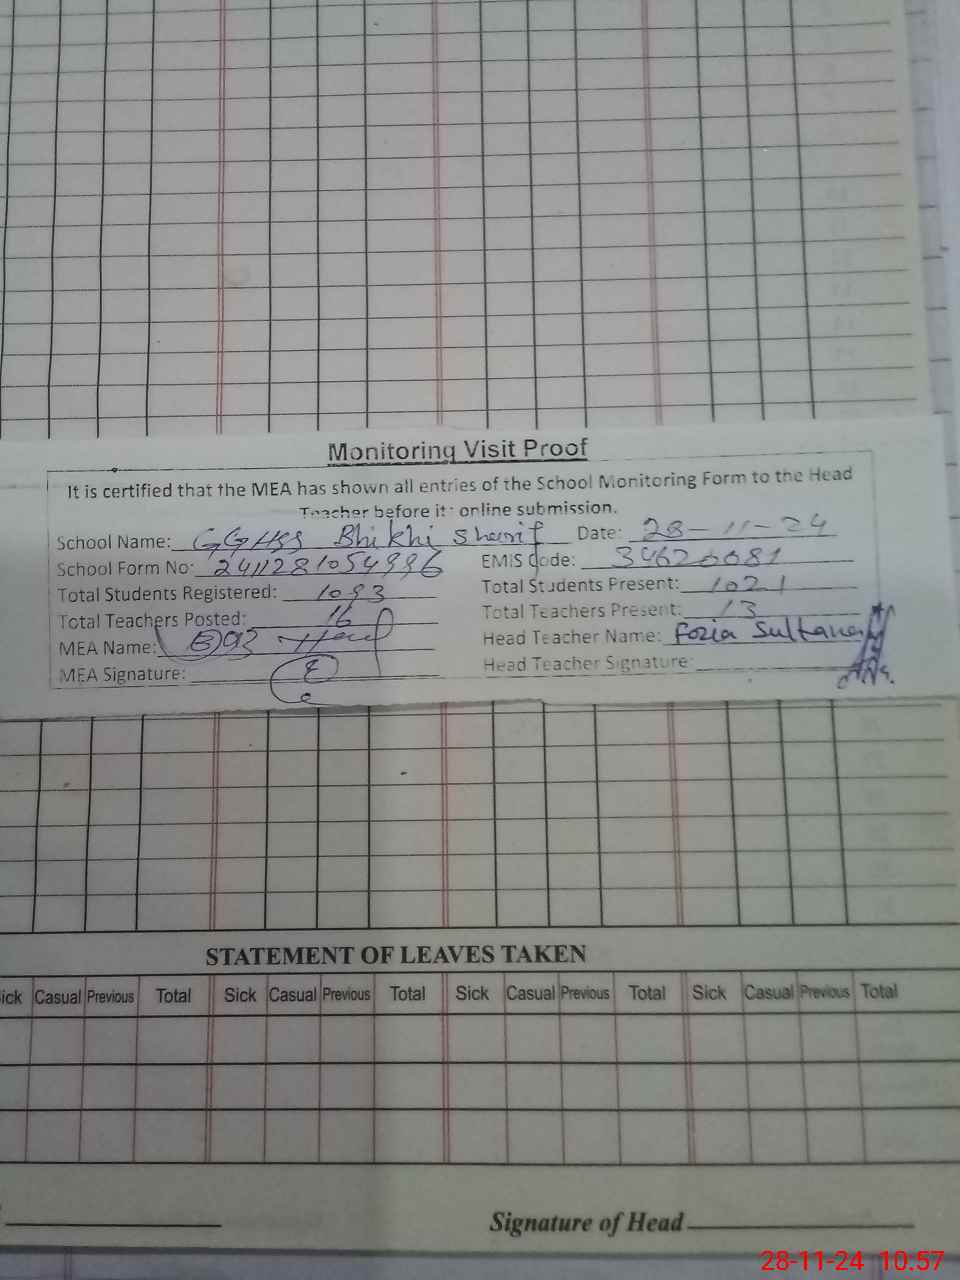 Monitoring Visit Proof
It is certified that the MEA has shown all entries of the School Monitoring Form to the Head
Teacher before it online submission.
School Name: GGHSS Bhikhi Sharif Date: 28-11-24
School Form No: 2411281054996 EMIS Code: 34620081
Total Students Registered: 1093 Total Students Present: 1021
Total Teachers Posted: 16 Total Teachers Present: 13
MEA Name: Head Teacher Name: Fozia Sultana
MEA Signature: Head Teacher Signature:
STATEMENT OF LEAVES TAKEN
ick Casual Previous Total Sick Casual Previous Total Sick Casual Previous Total Sick Casual Previous Total
Signature of Head
28-11-24 10:57